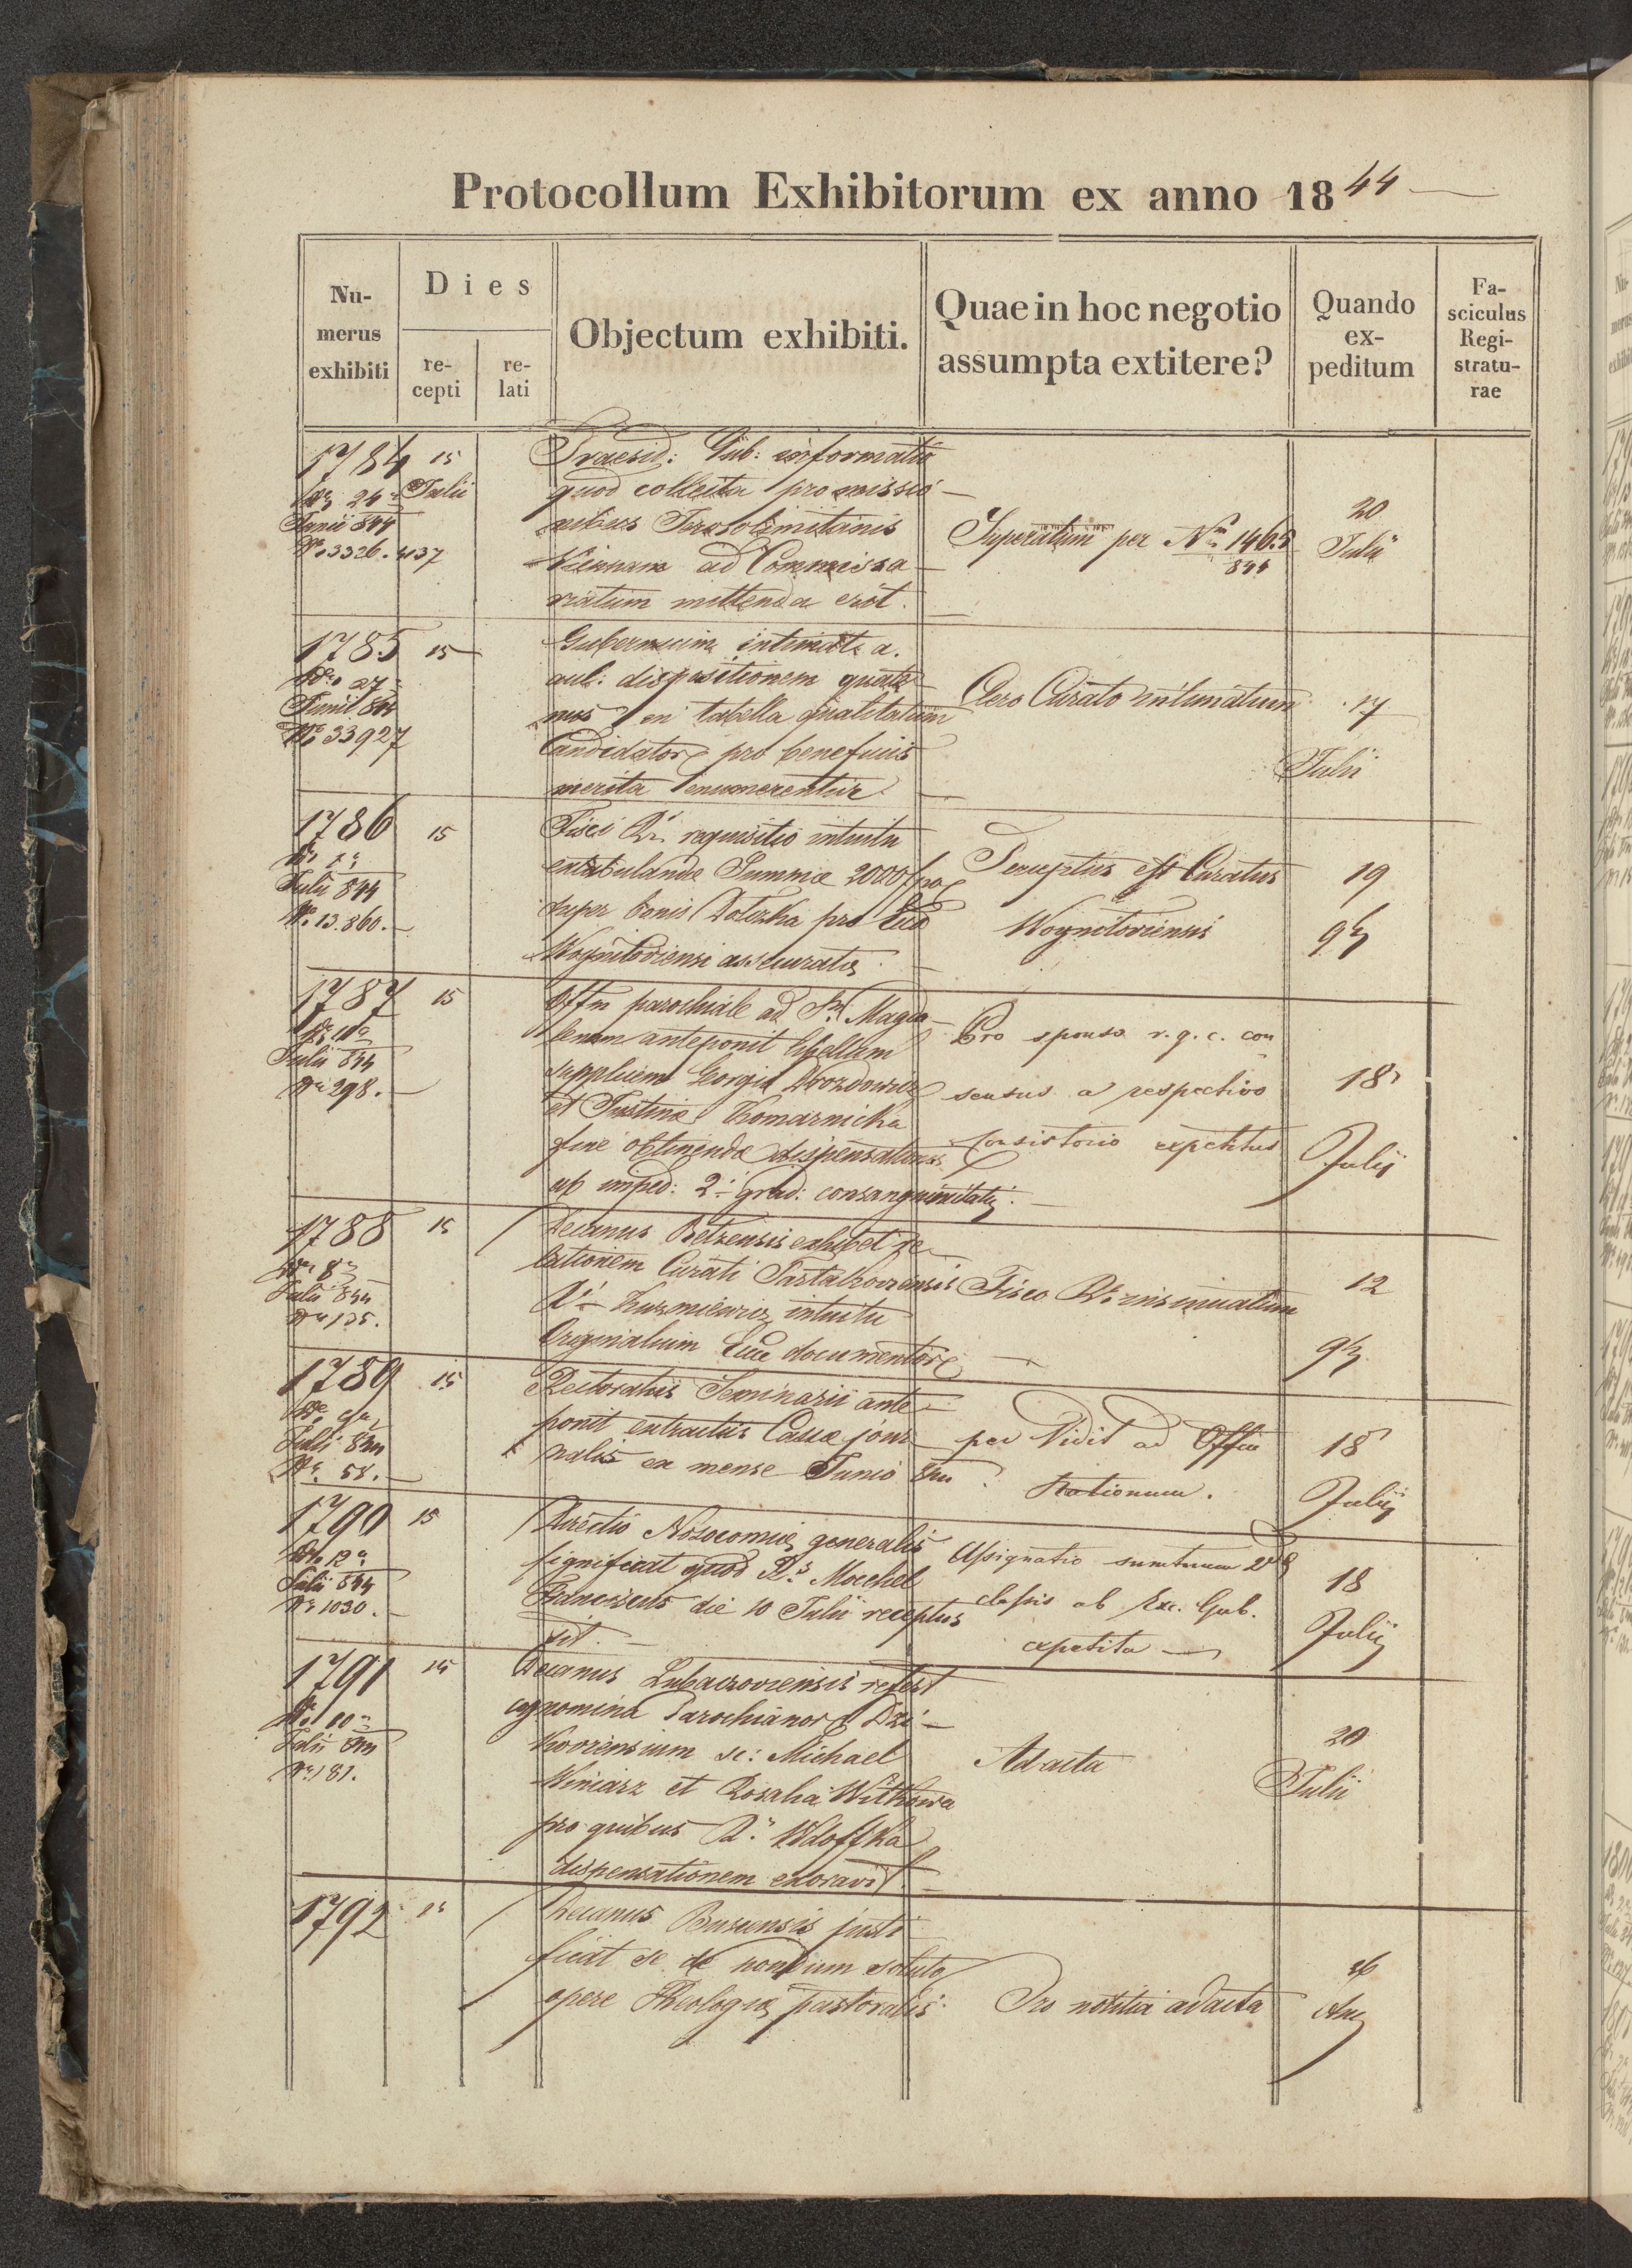 Protocollum Exhibitorum ex anno 1844
Nu-
merus
exhibiti
Dies
re-
cepti
re-
lati
Objectum exhibiti.
Quae in hoc negotio
assumpta extitere?
Quando
ex-
peditum
Fa-
sciculus
Regi-
stratu-
rae
1784 15
24 Julii
Junii 844
No 3326. 4137
Praesid: Gub: informatio
quod collecta pro missio-
nibus Jerosolimitanis
Viennam ad Commissa-
riatum mittenda erit.
Superatum per Nm 1463
844
20
Julii
1785 15
ddo 27
Junii 844
No 33927
Gubernium intimat a.
aul: dispositionem quate-
nus in tabella qualitatum
Candidator pro beneficiis
merita enumerentur
Clero Curato intimatum
17
Julii
1786 15
Julii 844
No 13.860.
Fisci Ri requisitio intuitu
extabulandae Summae 2000 f
super bonis pro Ecca
Perceptus est Curatus
19
1787 15
Julii 844
No 298.
Offm parochiale ad St. Magda-
lenam anteponit libellum
supplicem Georgii
et Justinae Komarnicka
fine obtinendae dispensationis
ab imped: 2i grad: consanguinitatis.
Pro sponso r. g. c. con
sensus a respectivo
Consistorio expetitus
18
Julii
1788 15
8
Julii 844
No 125.
Decanus Belzensis exhibet re-
lationem Curati Tartakoviensis
Ri Kuzmiewicz intuitu
Originalium Ecce documentor
Fisco Ro insinuatum
12
1789 15
Julii 844
No 58.
Rectoratus Seminarii ante-
ponit extractus Cassae jour-
nalis ex mense Junio 844
per Vidit ad Offic
Rationum.
18
Julii
1790 15
ddo 12
Julii 844
No 1030.
Directio Nosocomii generalis
significat quod Rs Mochel
Franciscus die 10 Julii receptus
sit.
Assignatio sumtuum 2
classis ab Exc. Gub.
expetita
18
Julii
1791 15
ddo 10
Julii 844
No 181.
Decanus Lubaczoviensis refert
cognomina Parochianor Dzi-
koviensium sc: Michael
Winiarz et Rosalia Witkowa
pro quibus R. Wdoffka
dispensationem exoravit.
Ad acta
20
Julii
1792 15
Decanus Buscensis justi
ficat se de nondum soluto
opere Theologiae pastoralis.
Pro notitia ad acta
26
Aug